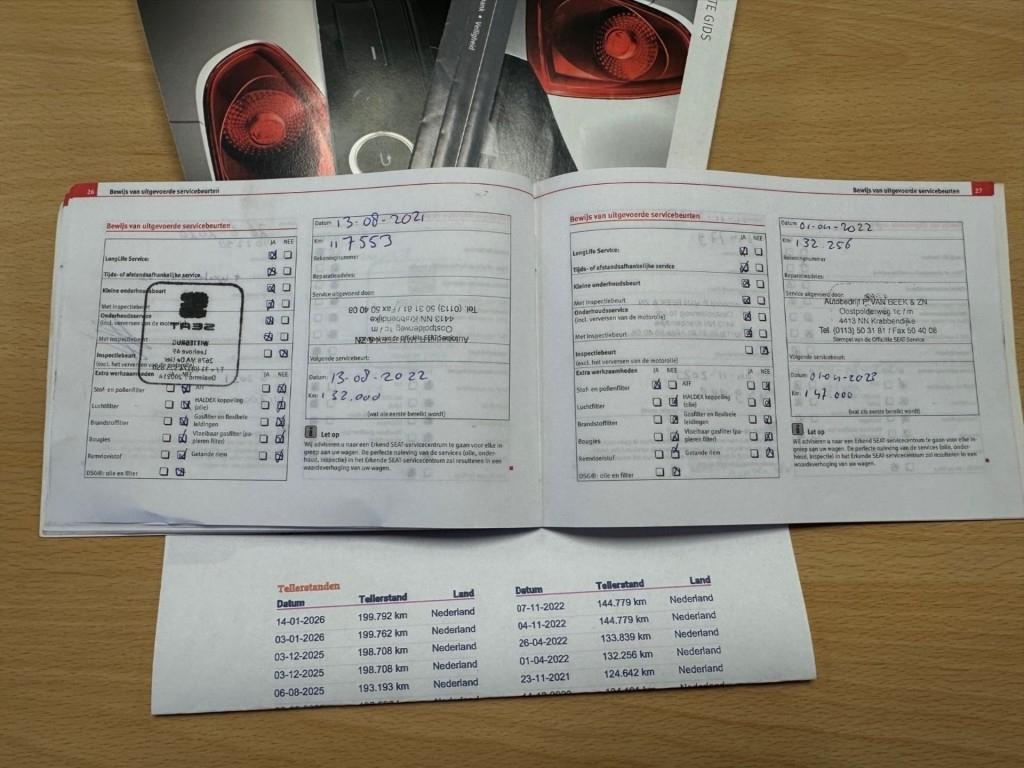 TE GIDS
Veiligheid
26 Bewijs van uitgevoerde servicebeurten
Bewijs van uitgevoerde servicebeurten
JA NEE
LongLife Service:
Tijds- of afstandsafhankelijke service
Kleine onderhoudsbeurt
Met Inspectiebeurt
Onderhoudsservice
(incl. verversen van de motorolie)
Met Inspectiebeurt
Inspectiebeurt
(excl. het verversen van de motorolie)
SEAT
Extra werkzaamheden JA NEE
Stof- en pollenfilter
Luchtfilter
Brandstoffilter
Bougies
Remvloeistof
DSG®: olie en filter
ATF
HALDEX koppeling
(olie)
Gasfilter en flexibele
leidingen
Vloeibaar gasfilter (pa-
pieren filter)
Getande riem
Datum: 13-08-2021
Km: 117553
Rekeningnummer
Reparatieadvies:
Service uitgevoerd door:
Tel. (0113) 50 31 81 / Fax 50 40 08
4413 NN Krabbendijke
Oostpolderweg 1c / m
Volgende servicebeurt:
Datum: 13-08-2022
Km: 132.000
(wat als eerste bereikt wordt)
Let op
Wij adviseren u naar een Erkend SEAT-servicecentrum te gaan voor elke in-
greep aan uw wagen. De perfecte naleving van de services (olie, onder-
houd, inspectie) in het Erkende SEAT-servicecentrum zal resulteren in een
waardeverhoging van uw wagen.
Bewijs van uitgevoerde servicebeurten 27
Bewijs van uitgevoerde servicebeurten
JA NEE
LongLife Service:
Tijds- of afstandsafhankelijke service
Kleine onderhoudsbeurt
Met Inspectiebeurt
Onderhoudsservice
(incl. verversen van de motorolie)
Met Inspectiebeurt
Inspectiebeurt
(excl. het verversen van de motorolie)
Extra werkzaamheden JA NEE
Stof- en pollenfilter
Luchtfilter
Brandstoffilter
Bougies
Remvloeistof
DSG®: olie en filter
ATF
HALDEX koppeling
(olie)
Gasfilter en flexibele
leidingen
Vloeibaar gasfilter (pa-
pieren filter)
Getande riem
Datum: 01-04-2022
Km: 132.256
Rekeningnummer
Reparatieadvies:
Service uitgevoerd door:
Autobedrijf P. VAN BEEK & ZN
Oostpolderweg 1c / m
4413 NN Krabbendijke
Tel. (0113) 50 31 81 / Fax 50 40 08
Stempel van de Officiële SEAT Service
Volgende servicebeurt:
Datum: 01-04-2023
Km: 147.000
(wat als eerste bereikt wordt)
Let op
Wij adviseren u naar een Erkend SEAT-servicecentrum te gaan voor elke in-
greep aan uw wagen. De perfecte naleving van de services (olie, onder-
houd, inspectie) in het Erkende SEAT-servicecentrum zal resulteren in een
waardeverhoging van uw wagen.
Tellerstanden
Datum Tellerstand Land
14-01-2026 199.792 km Nederland
03-01-2026 199.762 km Nederland
03-12-2025 198.708 km Nederland
03-12-2025 198.708 km Nederland
06-08-2025 193.193 km Nederland
Datum Tellerstand Land
07-11-2022 144.779 km Nederland
04-11-2022 144.779 km Nederland
26-04-2022 133.839 km Nederland
01-04-2022 132.256 km Nederland
23-11-2021 124.642 km Nederland